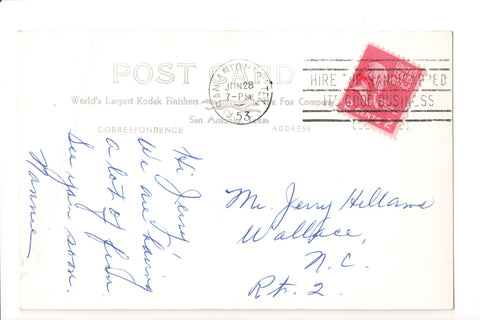 POST CARD
World's Largest Kodak Finishers The Fox Company
San Antonio, Texas
CORRESPONDENCE ADDRESS
SAN ANTONIO, TEX.
JUN 28
7-PM
53
HIRE THE HANDICAPPED
IT'S GOOD BUSINESS
CENTS 2
Hi Jerry,
We are having
a lot of fun.
See you soon.
Nannie
Mr. Jerry Hellams
Wallace,
N.C.
Rt. 2.